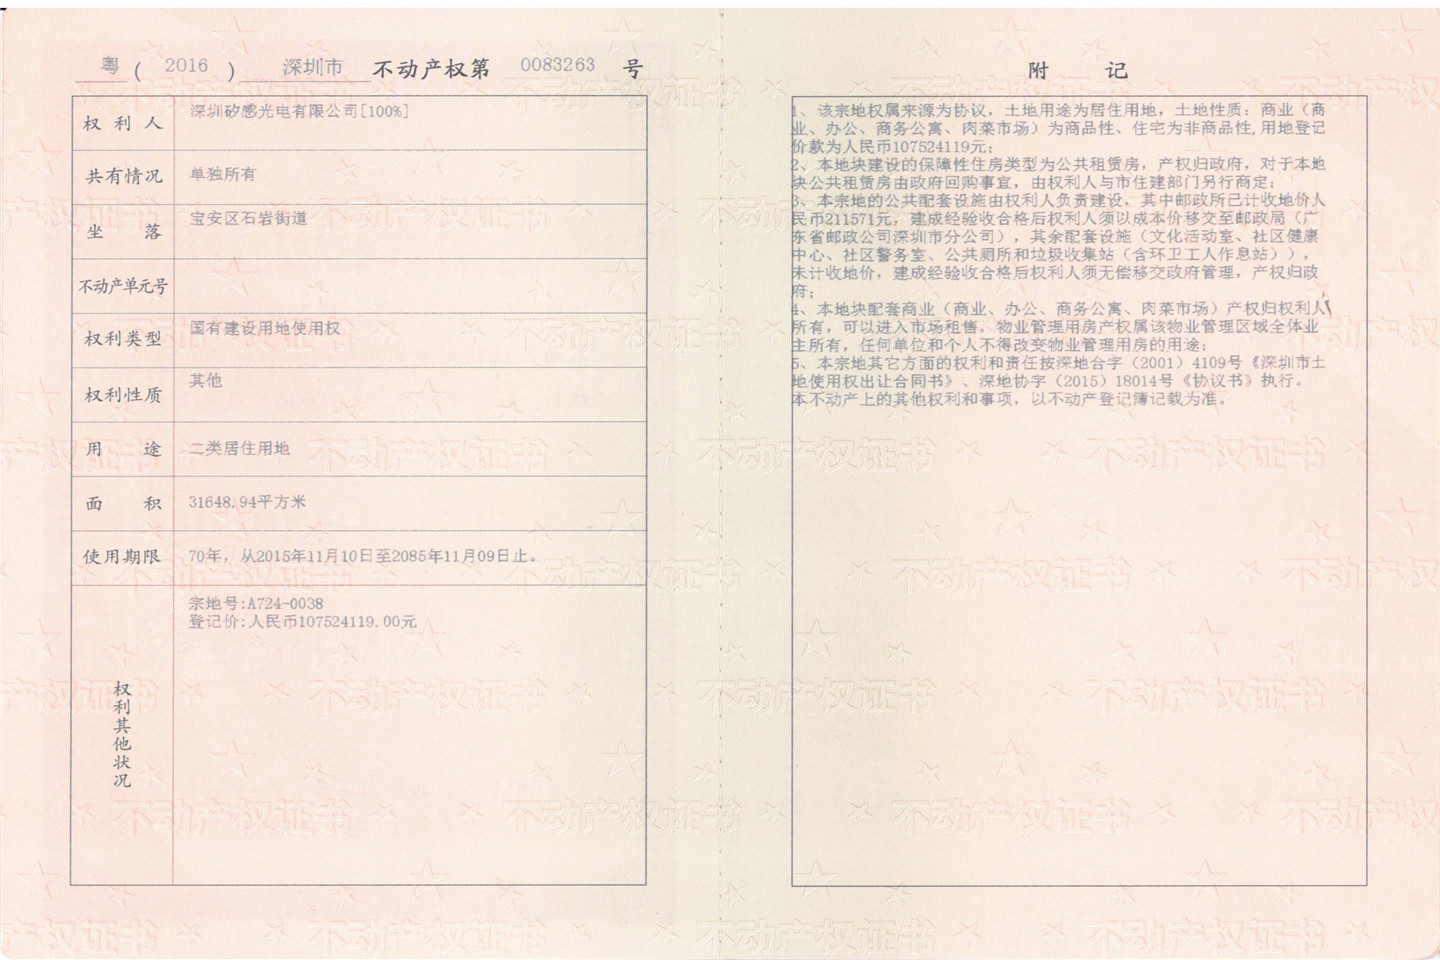 粤（2016）深圳市不动产权第0083263号
权利人 深圳矽感光电有限公司[100%]
共有情况 单独所有
坐落 宝安区石岩街道
不动产单元号
权利类型 国有建设用地使用权
权利性质 其他
用途 二类居住用地
面积 31648.94平方米
使用期限 70年，从2015年11月10日至2085年11月09日止。
权利其他状况
宗地号:A724-0038
登记价:人民币107524119.00元
附记
1、该宗地权属来源为协议，土地用途为居住用地，土地性质：商业（商
业、办公、商务公寓、肉菜市场）为商品性、住宅为非商品性,用地登记
价款为人民币107524119元；
2、本地块建设的保障性住房类型为公共租赁房，产权归政府，对于本地
块公共租赁房由政府回购事宜，由权利人与市住建部门另行商定；
3、本宗地的公共配套设施由权利人负责建设，其中邮政所已计收地价人
民币211571元，建成经验收合格后权利人须以成本价移交至邮政局（广
东省邮政公司深圳市分公司），其余配套设施（文化活动室、社区健康
中心、社区警务室、公共厕所和垃圾收集站（含环卫工人作息站）），
未计收地价，建成经验收合格后权利人须无偿移交政府管理，产权归政
府；
4、本地块配套商业（商业、办公、商务公寓、肉菜市场）产权归权利人
所有，可以进入市场租售，物业管理用房产权属该物业管理区域全体业
主所有，任何单位和个人不得改变物业管理用房的用途；
5、本宗地其它方面的权利和责任按深地合字（2001）4109号《深圳市土
地使用权出让合同书》、深地协字（2015）18014号《协议书》执行。
本不动产上的其他权利和事项，以不动产登记簿记载为准。